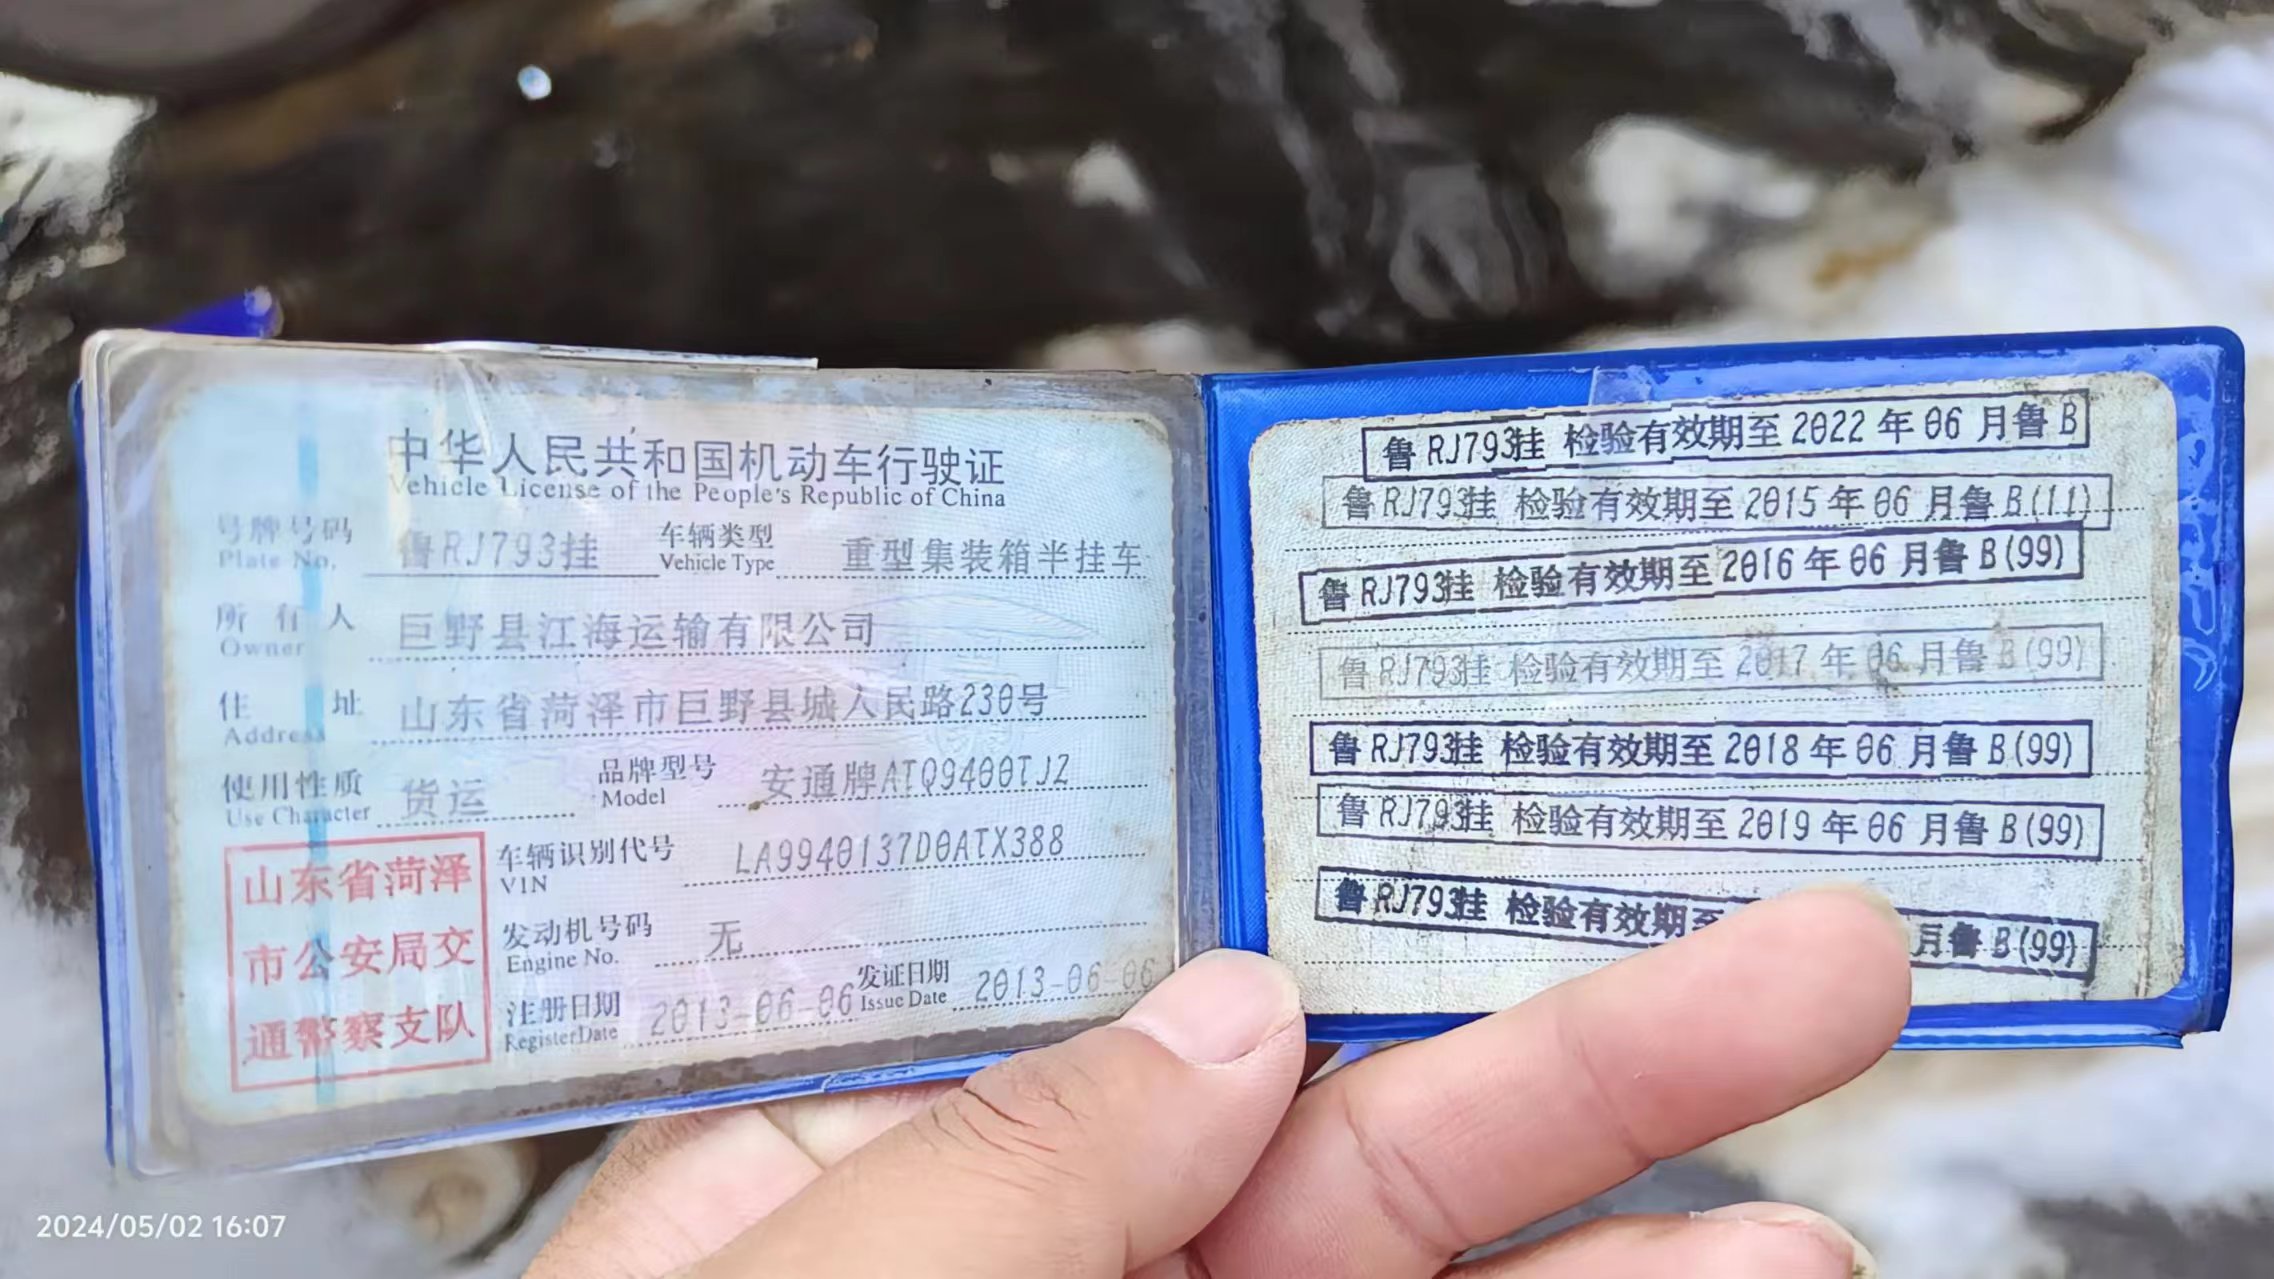 中华人民共和国机动车行驶证
Vehicle License of the People's Republic of China
号牌号码 鲁RJ793挂 车辆类型 重型集装箱半挂车
Plate No. Vehicle Type
所有人 巨野县江海运输有限公司
Owner
住址 山东省菏泽市巨野县城人民路230号
Address
使用性质 货运 品牌型号 安通牌ATQ9400TJZ
Use Character Model
山东省菏泽
市公安局交
通警察支队
车辆识别代号 LA9940137D0ATX388
VIN
发动机号码 无
Engine No.
注册日期 2013-06-06 发证日期 2013-06-06
Register Date Issue Date
鲁RJ793挂 检验有效期至2022年06月鲁B
鲁RJ793挂 检验有效期至2015年06月鲁B(11)
鲁RJ793挂 检验有效期至2016年06月鲁B(99)
鲁RJ793挂 检验有效期至2017年06月鲁B(99)
鲁RJ793挂 检验有效期至2018年06月鲁B(99)
鲁RJ793挂 检验有效期至2019年06月鲁B(99)
鲁RJ793挂 检验有效期至 月鲁B(99)
2024/05/02 16:07